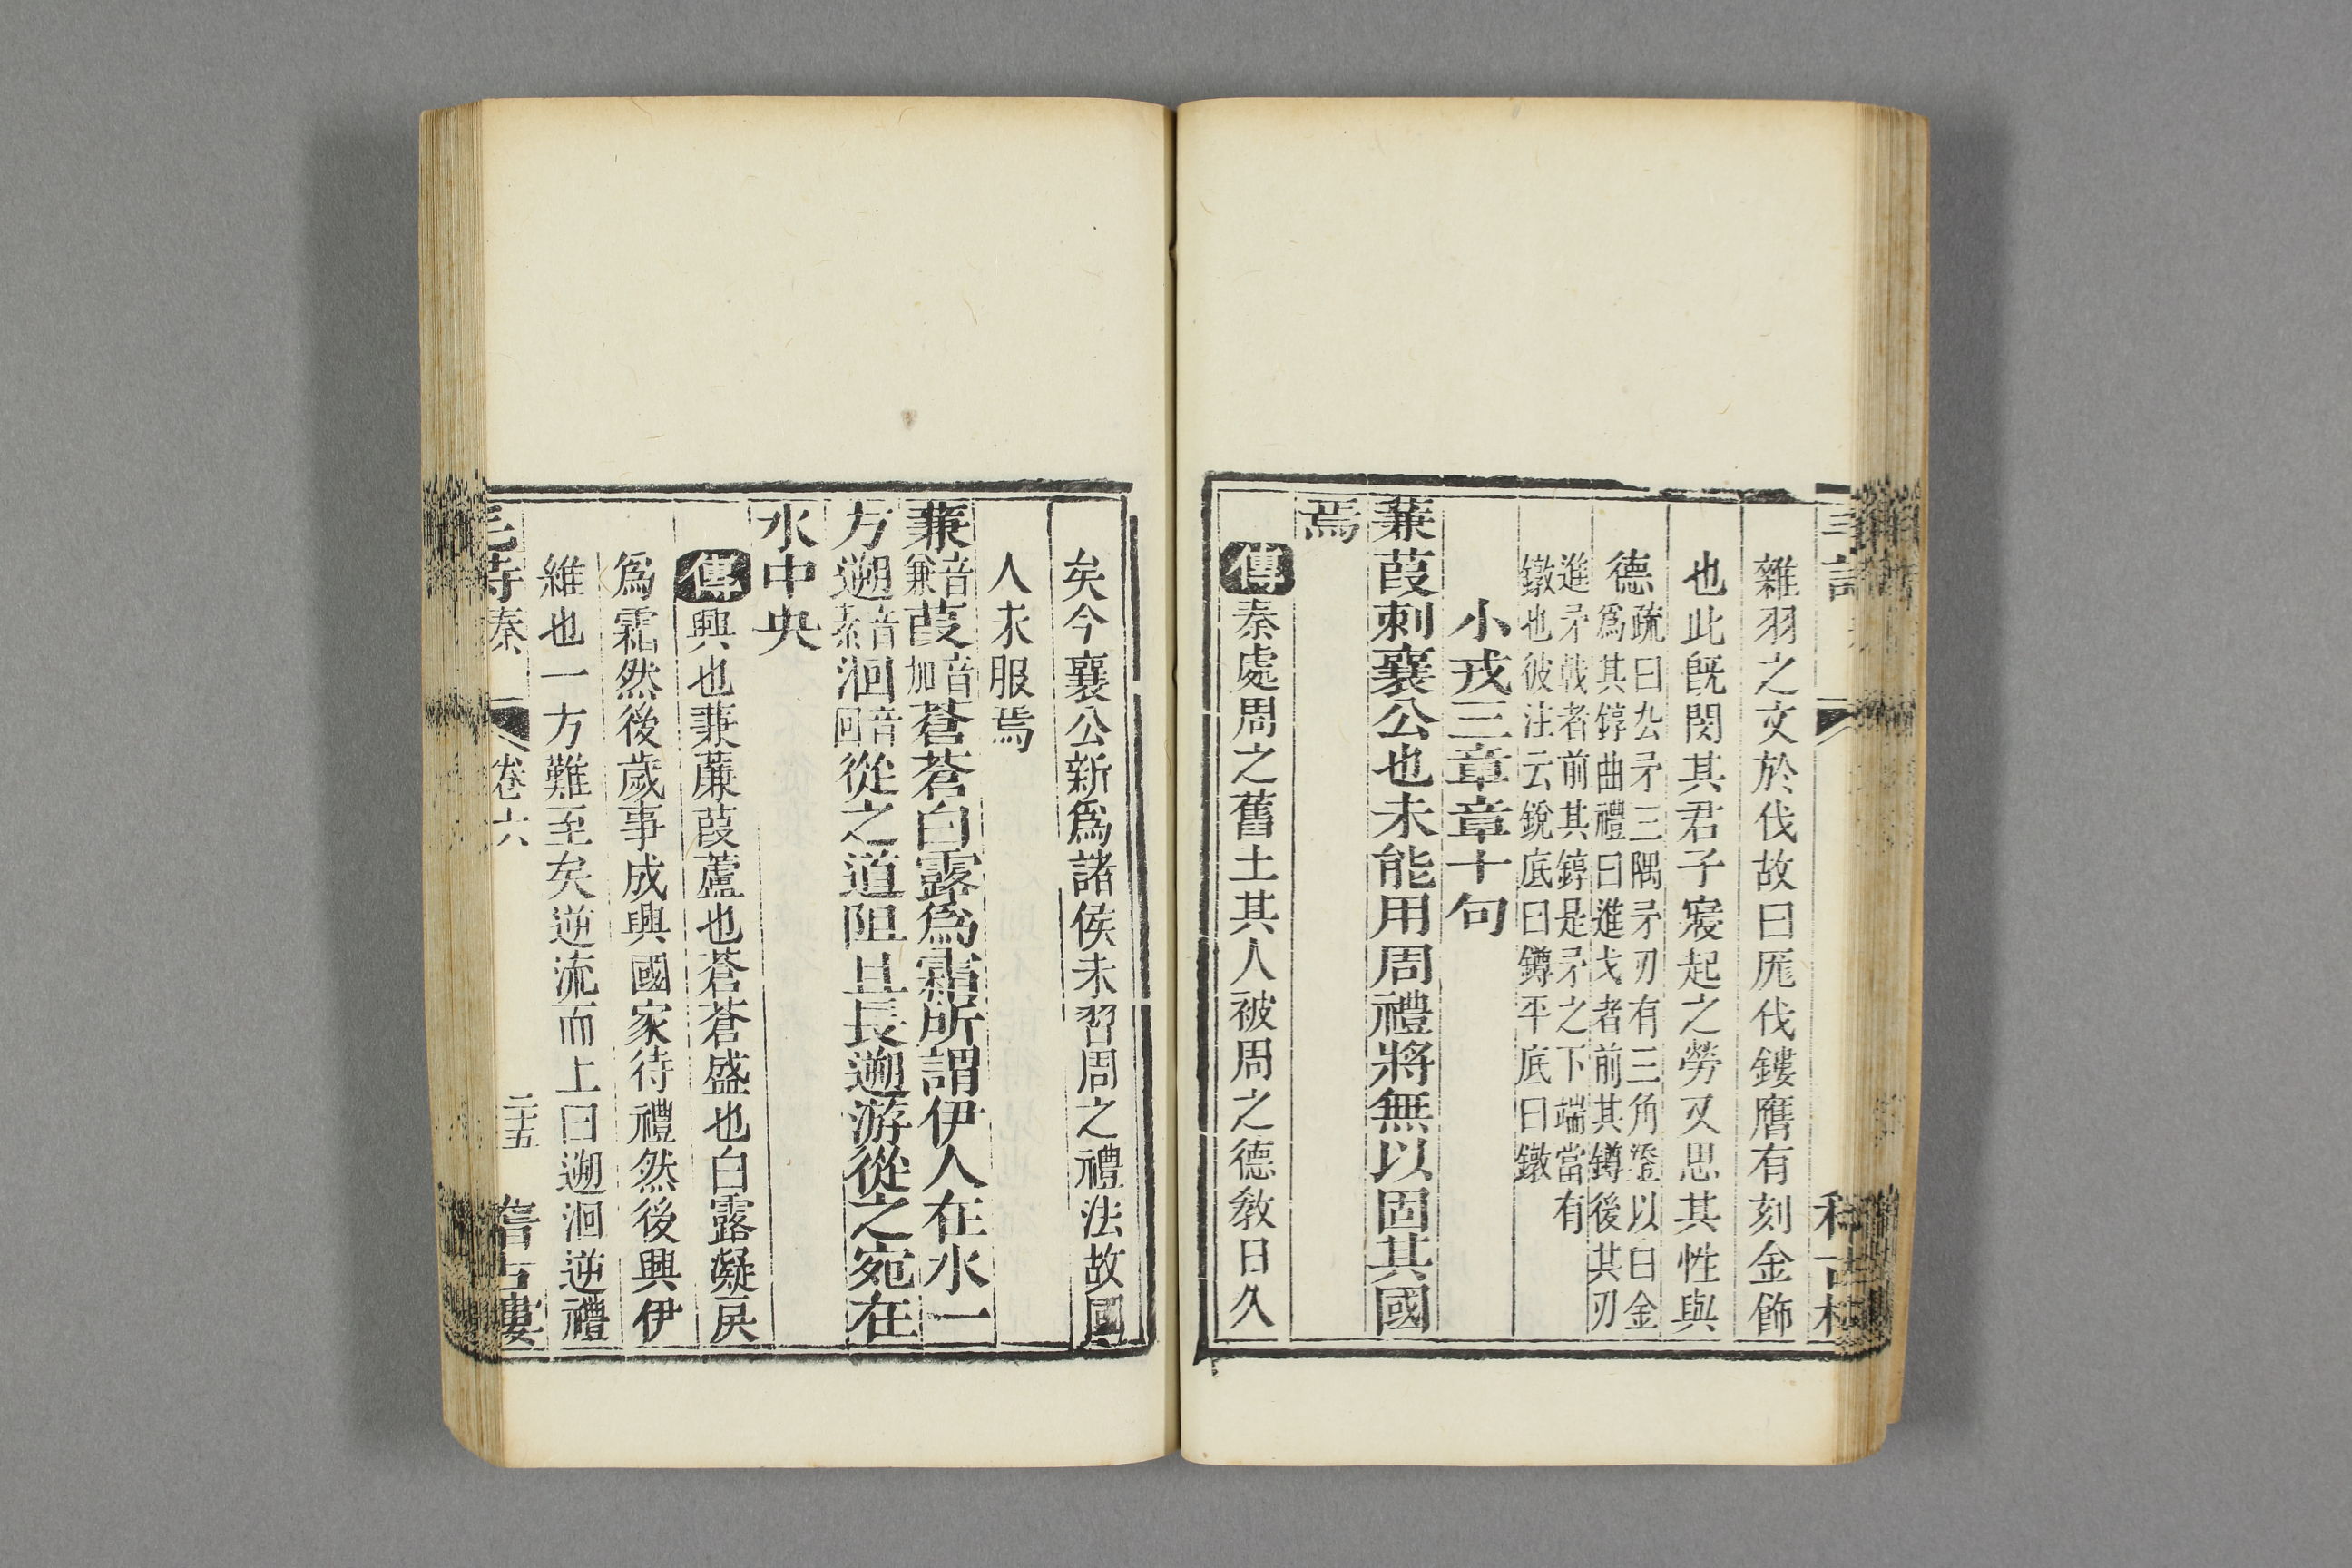 雜羽之文於伐故曰厖伐鏤膺有刻金飾
也此旣閔其君子寢起之勞又思其性與
德疏曰厹矛三隅矛刃有三角鋈以白金
爲其錞曲禮曰進戈者前其鐏後其刃
進矛戟者前其錞是矛之下端當有
鐓也彼注云銳底曰鐏平底曰鐓
小戎三章章十句
蒹葭刺襄公也未能用周禮將無以固其國
焉
傳秦處周之舊土其人被周之德敎日久
矣今襄公新爲諸侯未習周之禮法故國
人未服焉
蒹音兼葭音加蒼蒼白露爲霜所謂伊人在水一
方遡音素洄音回從之道阻且長遡游從之宛在
水中央
傳興也蒹薕葭蘆也蒼蒼盛也白露凝戾
爲霜然後歲事成興國家待禮然後興伊
維也一方難至矣逆流而上曰遡洄逆禮
毛詩秦 卷六 二十五